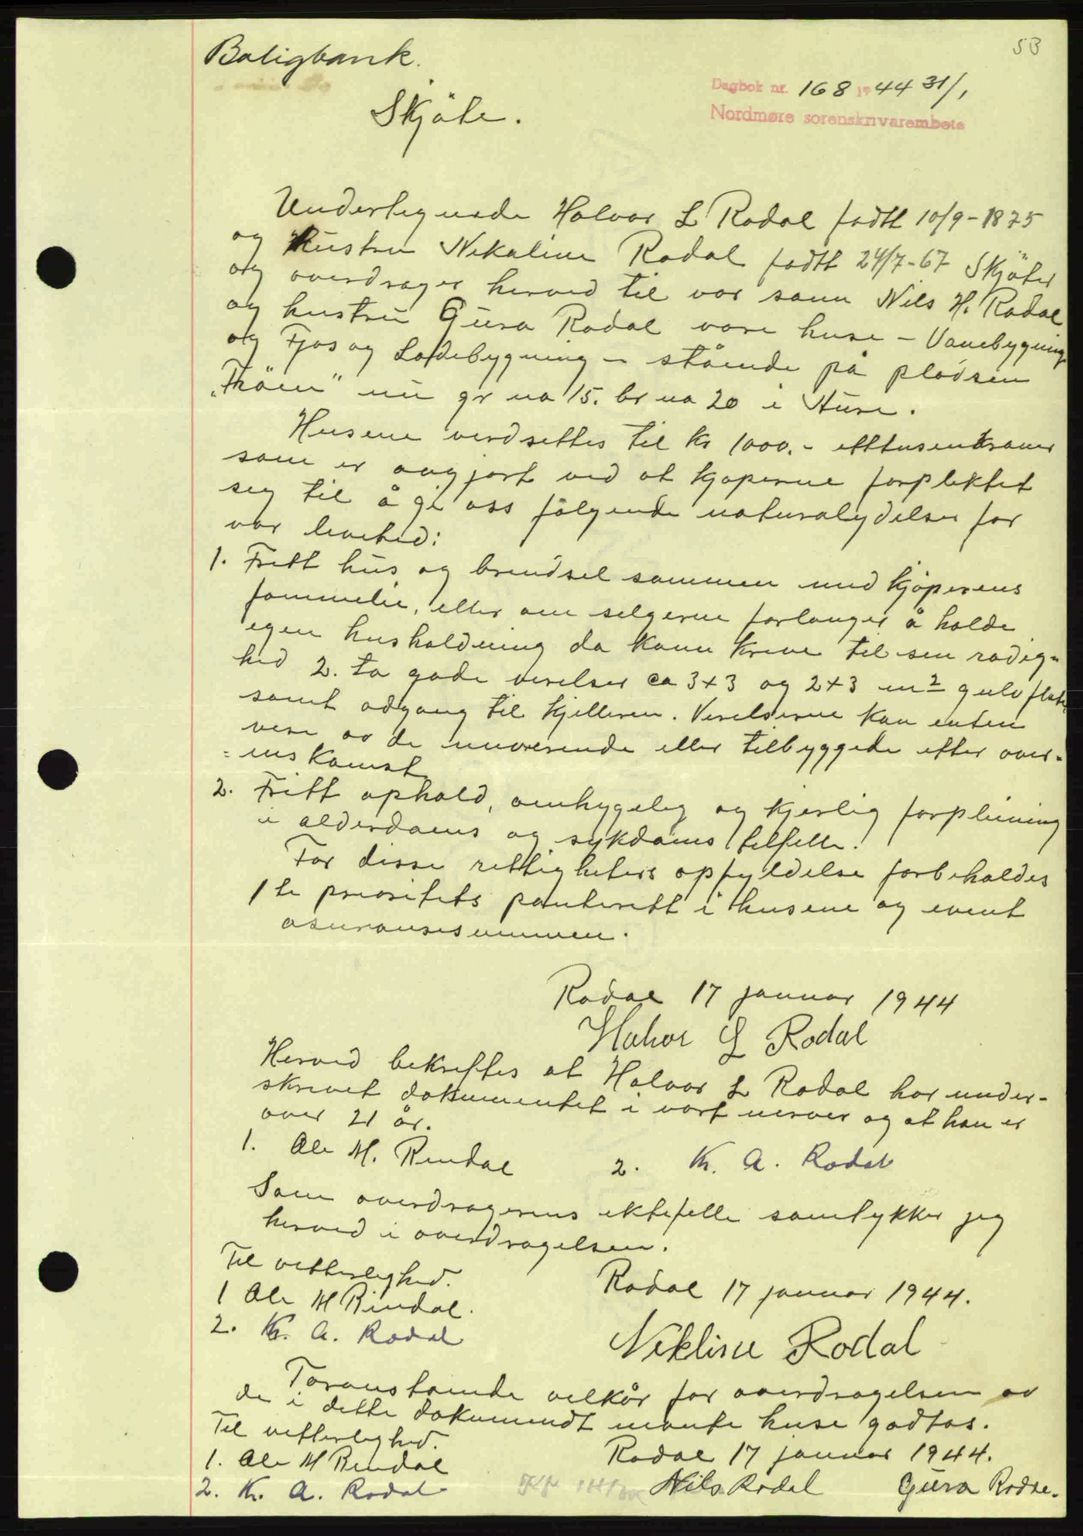 53
Boligbank.
Dagbok nr. 168 1944 31/1
Nordmøre sorenskrivarembete
Skjöte.
Undertegnede Halvor L Rodal fødtt 10/9-1875
og Hustru Nekoline Rodal fødtt 24/7-67 Skjöter
og overdrager herved til vor sønn Nils H. Rodal
og hustru Gura Rodal vore huse - Vånebygning
og Fjøs og Ladebygning - stående på pladsen
"Tröen" nu gr no 15. br no 20 i Sture.
Husene verdsettes til kr 1000.- etttusenkroner
som er avgjort ved at kjøperne forpliktet
seg til å gi oss følgende naturalydelser for
vor levetid:
1. Fritt hus og brendsel sammen med kjøperens
fammilie, eller om selgerne forlanger å holde
egen husholdning da kann kreve til sin rådig-
hed 2. to gode verelser ca 3+3 og 2+3 m2 gulvflate
samt adgang til kjelleren. Verelserne kan enten
vere av de nuverende eller tilbyggede efter over-
=ens komst
2. Fritt ophold, omhygelig og kjerlig forpleining
i alderdoms og sykdoms tilfelle.
For disse rettigheters opfyldelse forbeholdes
1te prioritets panterett i husene og event
assuransesummen.
Rodal 17 januar 1944
Halvor L Rodal
Herved bekreftes at Halvor L Rodal har under-
skrevet dokumentet i vort nerver og at han er
over 21 år.
1. Ole M. Rindal 2. Kr. A. Rodal
Som overdragerens ektefelle samtykker jeg
herved i overdragelsen.
Til vitterlighed.
Rodal 17 januar 1944.
1 Ole M Rindal.
2. Kr. A. Rodal
Nekline Rodal
Foranstående vilkår for overdragelsen av
de i dette dokumendt nevnte huse godtas.
Til vitterlighed.
Rodal 17 januar 1944.
1. Ole M Rindal
2. Kr. A. Rodal
Nils Rodal Gura Rodal.